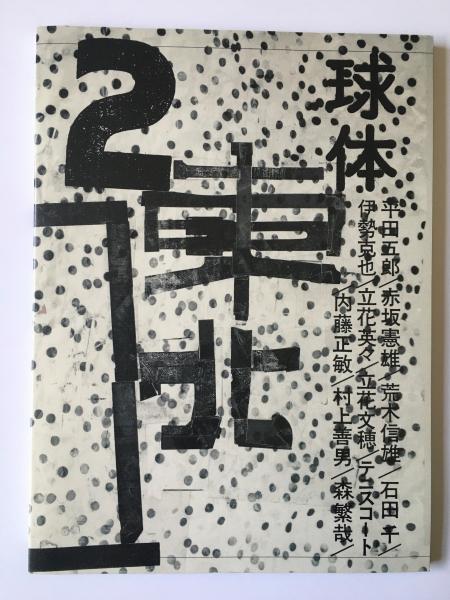 球体
2
東北
平田五郎／赤坂憲雄／荒木信雄／石田千／
伊勢克也／立花英久／立花文穂／テニスコート
／内藤正敏／村上善男／森繁哉／